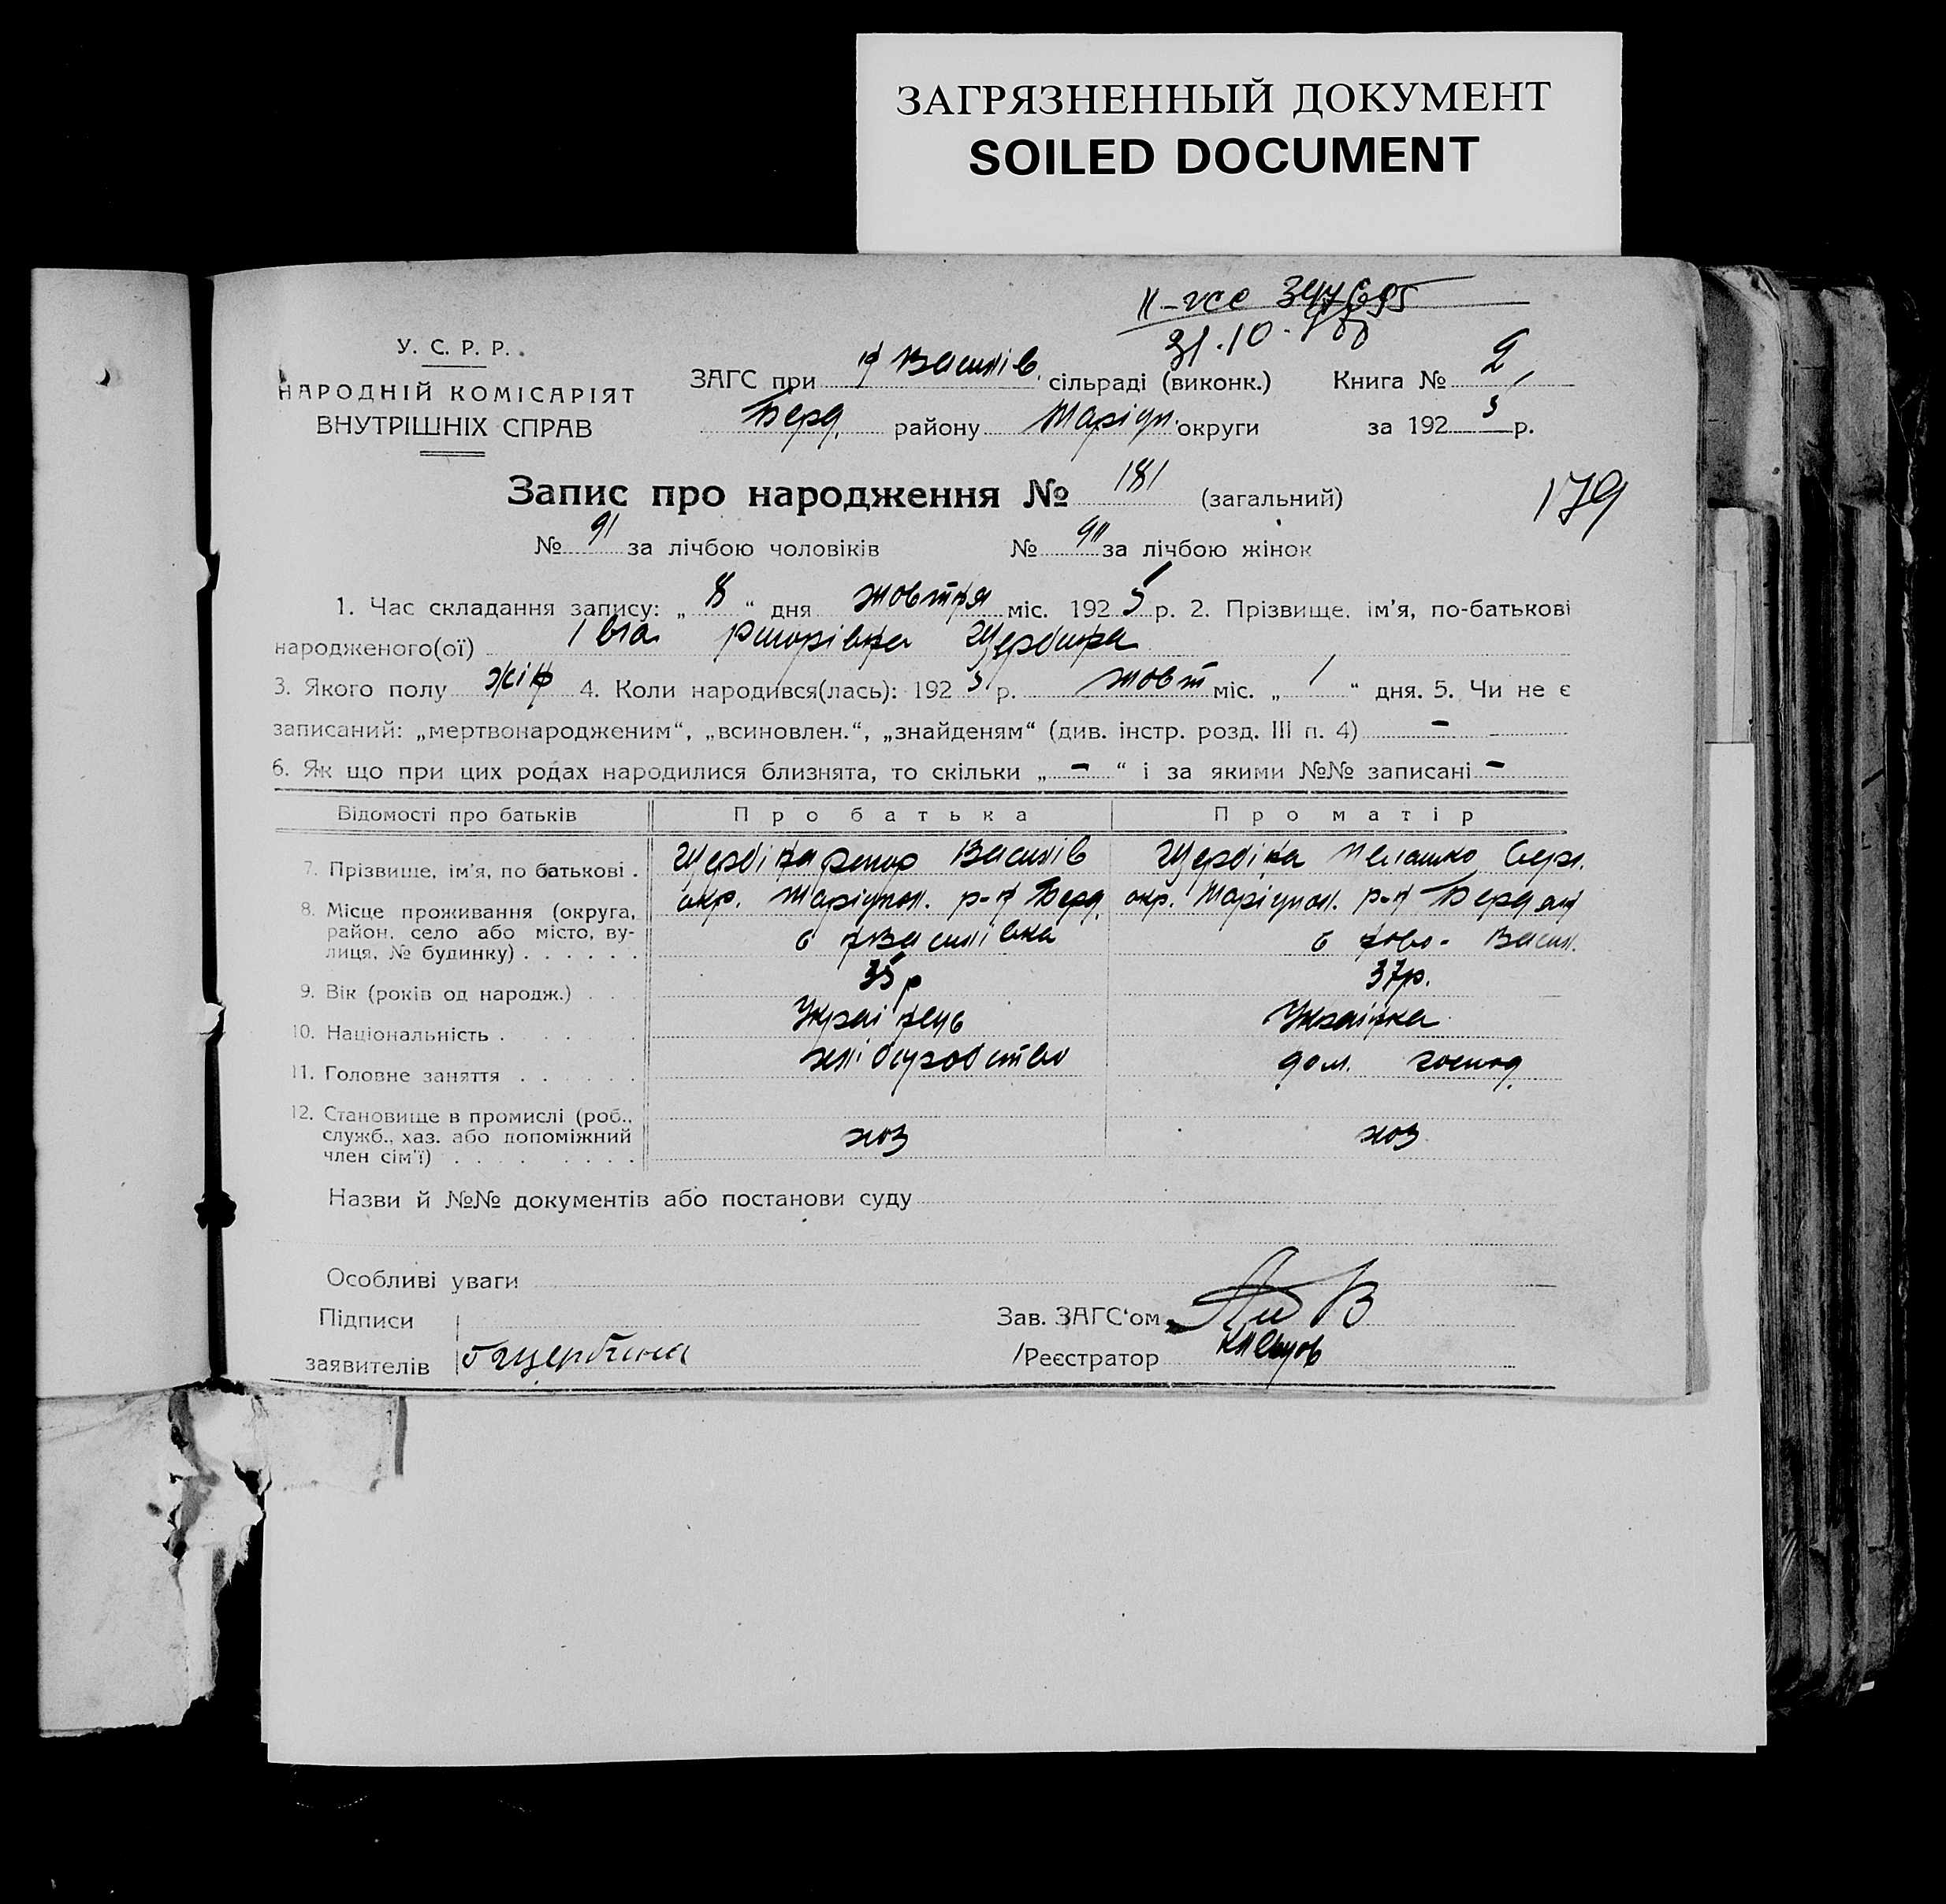 ЗАГРЯЗНЕННЫЙ ДОКУМЕНТ
SOILED DOCUMENT
31.10.
У. С. Р. Р.
НАРОДНІЙ КОМІСАРІЯТ
ВНУТРІШНІХ СПРАВ
ЗАГС при Н Василів. сільраді (виконк.) Книга № 2
Берд. району Маріуп. округи за 1925 р.
Запис про народження № 181 (загальний)
179
№ 91 за лічбою чоловіків № 90 за лічбою жінок
1. Час складання запису: „ 8 “ дня жовтня міс. 1925 р. 2. Прізвище, ім'я, по-батькові
народженого(ої) Щербина
3. Якого полу жін 4. Коли народився(лась): 1925 р. жовт міс. „ 1 “ дня. 5. Чи не є
записаний: „мертвонародженим“, „всиновлен.“, „знайденям“ (див. інстр. розд. III п. 4) -
6. Як що при цих родах народилися близнята, то скільки „ - “ і за якими №№ записані -
Відомості про батьків Про батька Про матір
7. Прізвище, ім'я, по батькові . Щербіна Василів Щербіна Мелашко
8. Місце проживання (округа, окр. Маріупол. р-н Берд. окр. Маріупол. р-н Бердян
район, село або місто, ву- с НВасилівка с Ново- Васил.
лиця, № будинку) . . . . . .
9. Вік (років од народж.) . . . 35 р 37р.
10. Національність . . . . . Українець Українка
11. Головне заняття . . . . . . хліборобство дом. господ.
12. Становище в промислі (роб.,
служб., хаз. або допоміжний хоз хоз
член сім'ї) . . . . . . . . .
Назви й №№ документів або постанови суду
Особливі уваги
Підписи Зав. ЗАГС'ом
заявителів Щербина /Реєстратор